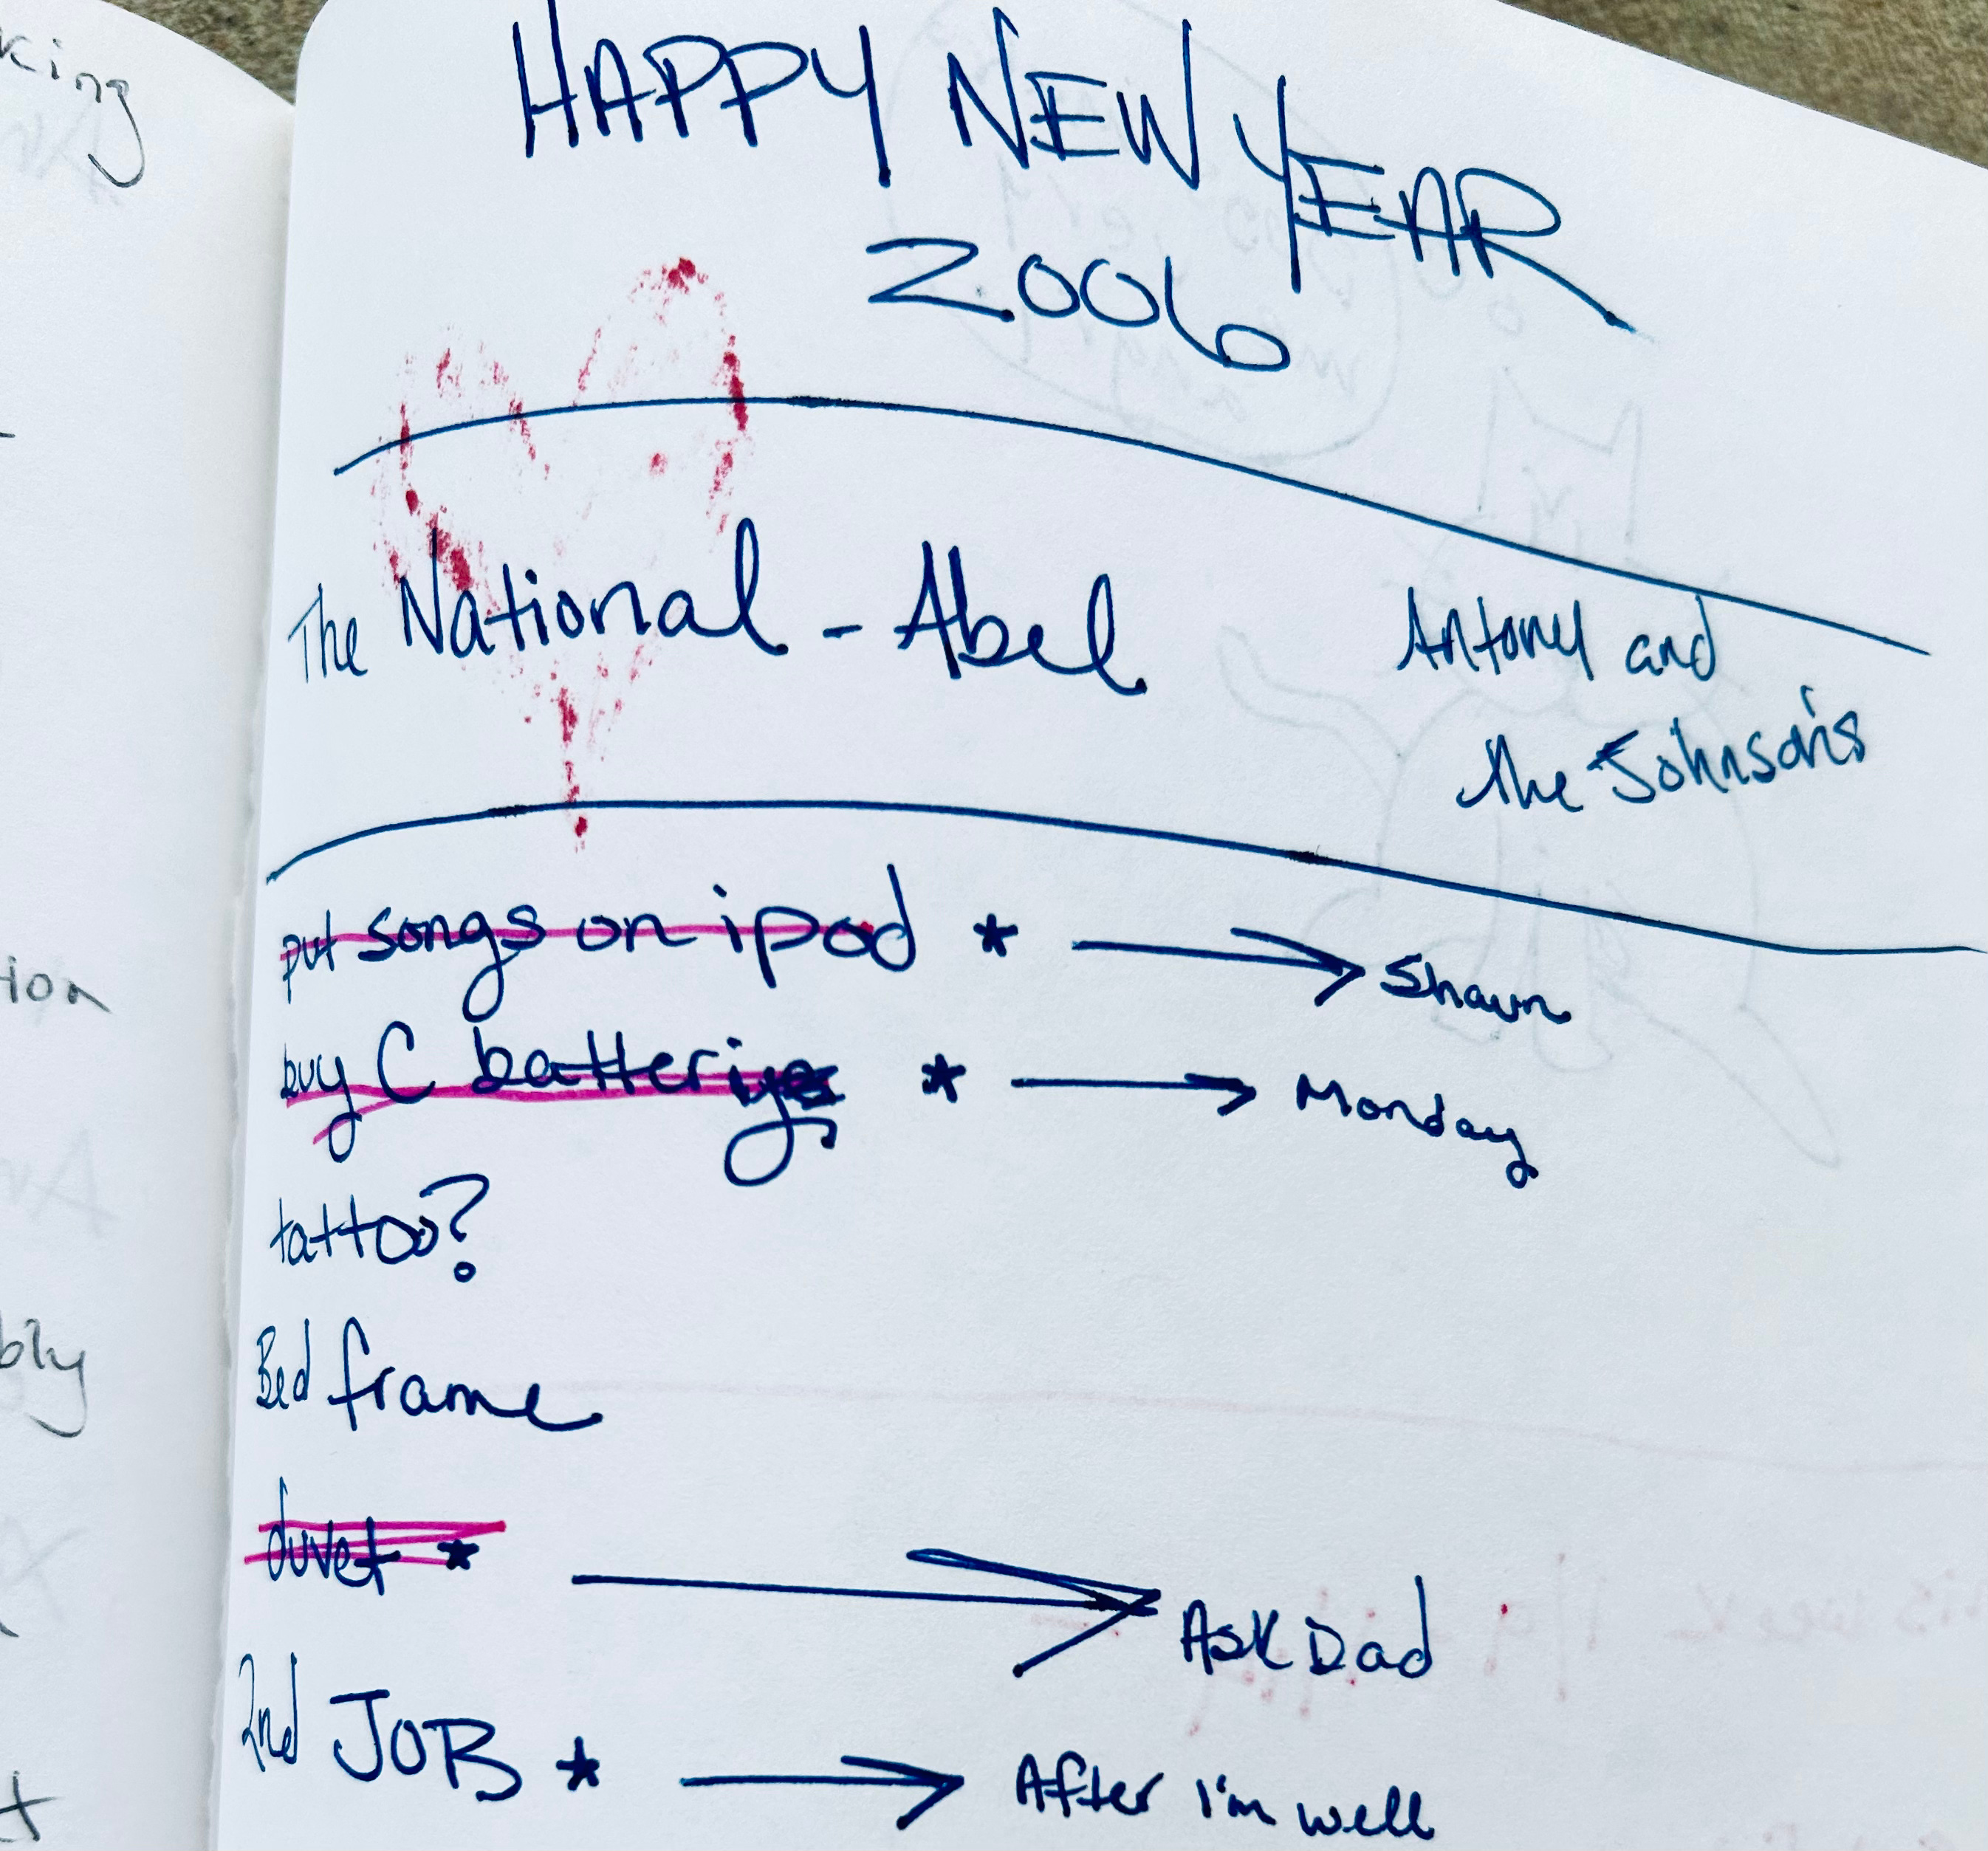 HAPPY NEW YEAR
2006
The National - Abel
Antony and
the Johnson's
put songs on ipod * → Shawn
buy C batterys * → Monday
tattoo?
Bed frame
duvet * → Ask Dad
2nd JOB * → After I'm well